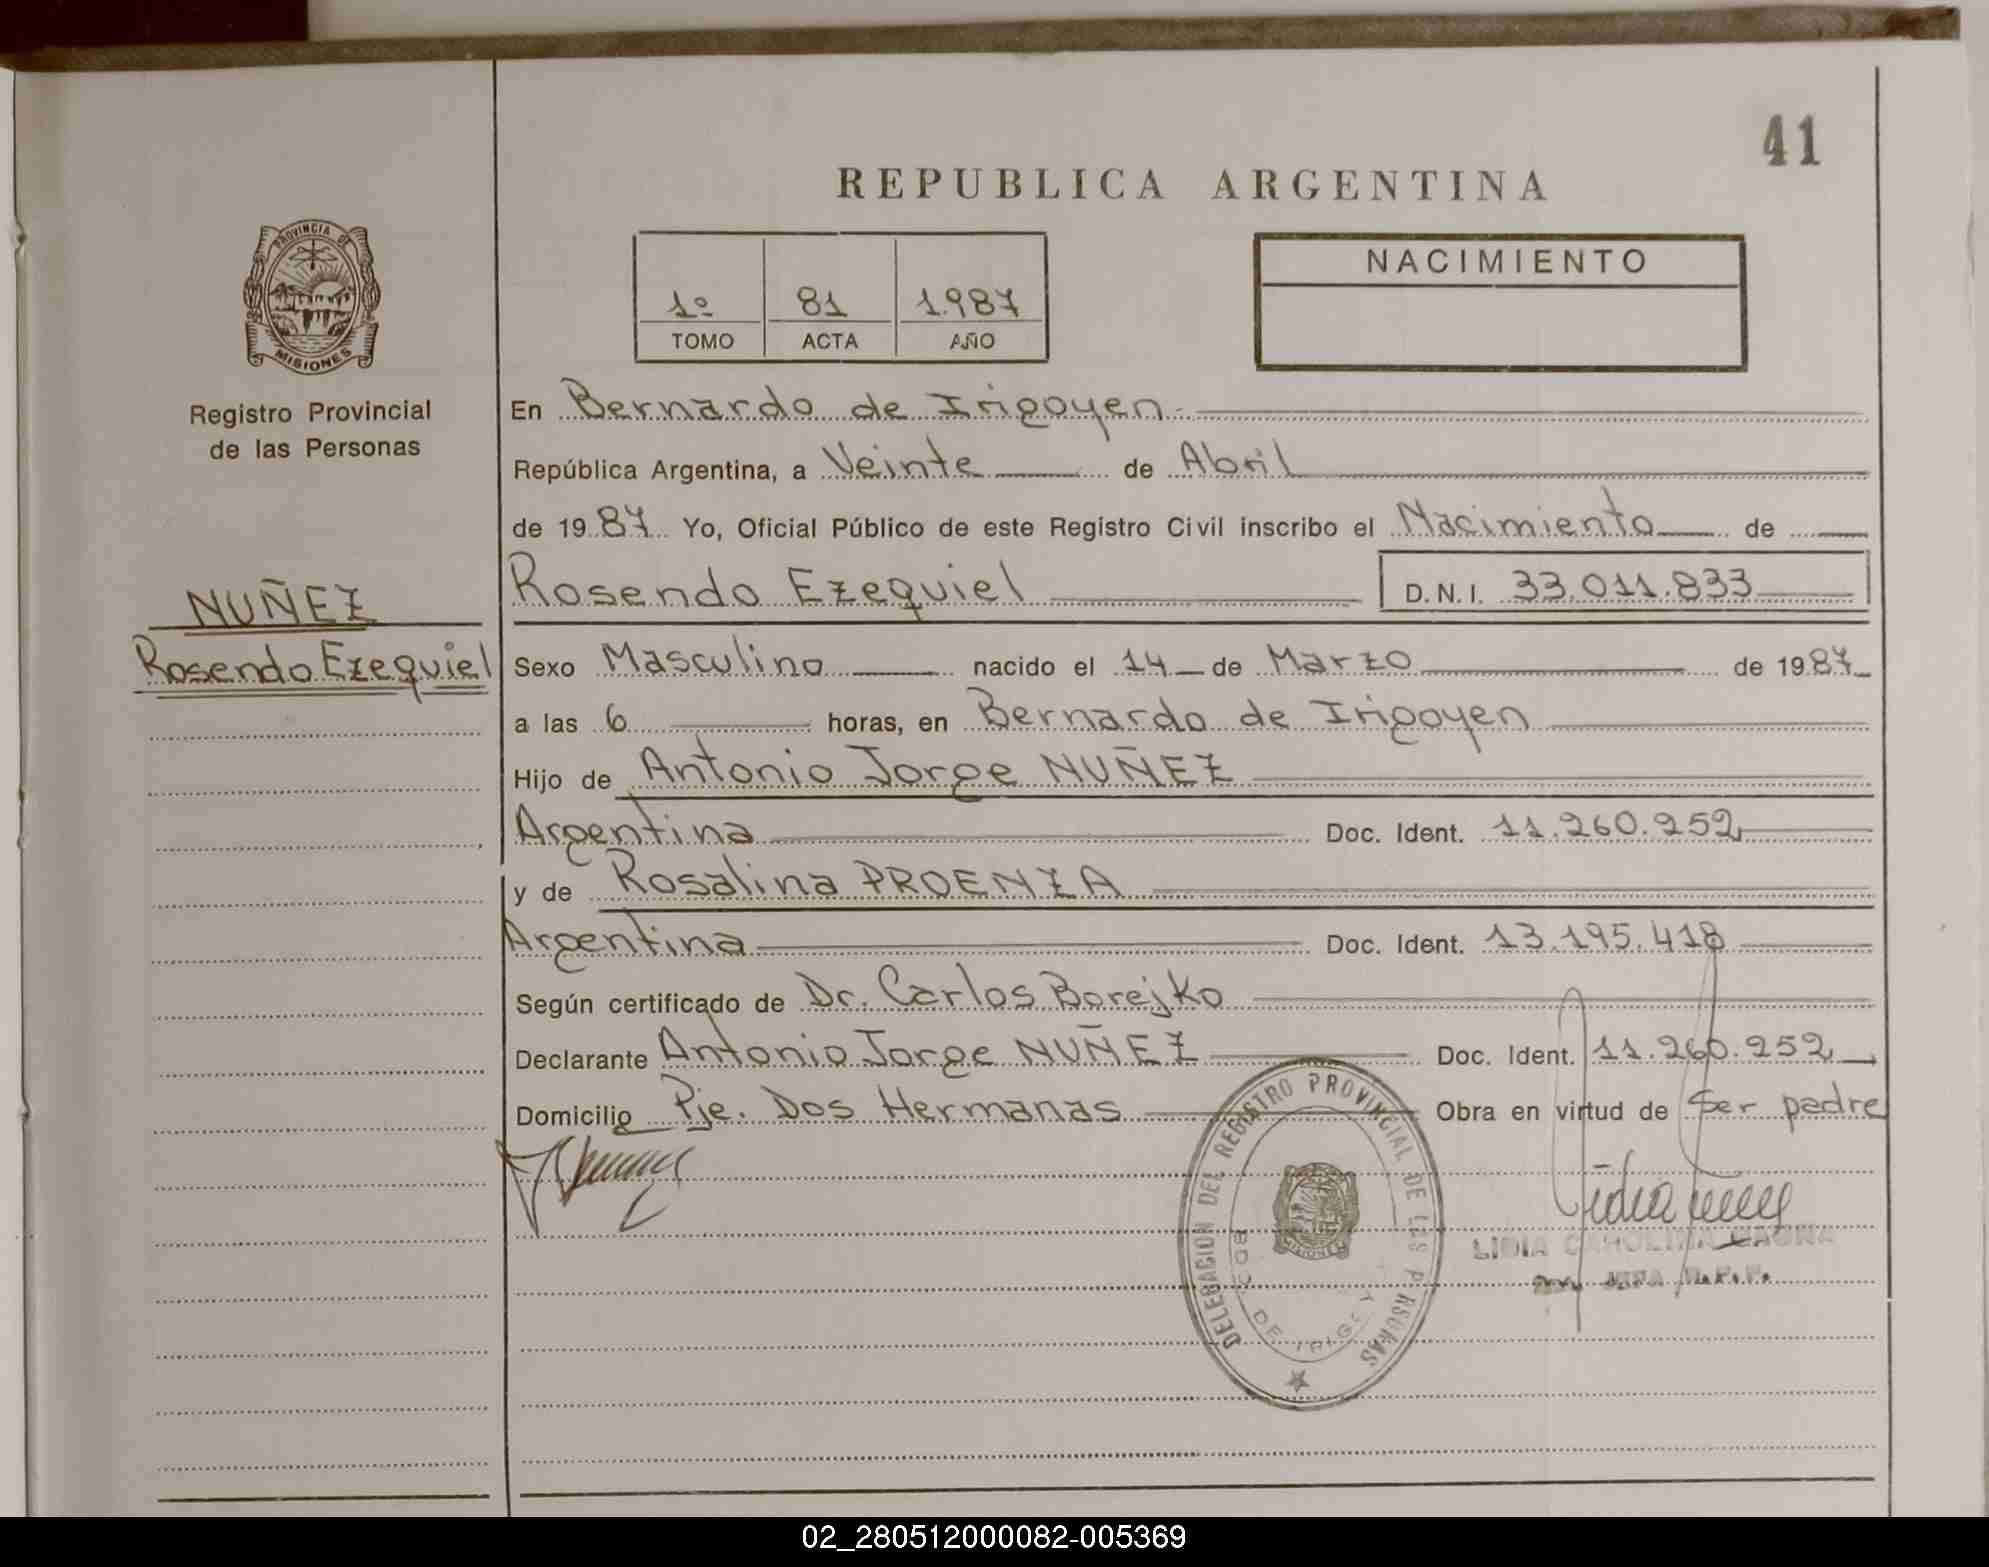 41
REPUBLICA ARGENTINA
PROVINCIA DE
MISIONES
1º 81 1.987
TOMO ACTA AÑO
NACIMIENTO
Registro Provincial
de las Personas
NUÑEZ
Rosendo Ezequiel
En Bernardo de Irigoyen
República Argentina, a Veinte de Abril
de 19 87 Yo, Oficial Público de este Registro Civil inscribo el Nacimiento de
Rosendo Ezequiel D.N.I. 33.011.833
Sexo Masculino nacido el 14 de Marzo de 19 87
a las 6 horas, en Bernardo de Irigoyen
Hijo de Antonio Jorge NUÑEZ
Argentina Doc. Ident. 11.260.252
y de Rosalina PROENZA
Argentina Doc. Ident. 13.195.418
Según certificado de Dr. Carlos Borejko
Declarante Antonio Jorge NUÑEZ Doc. Ident. 11.260.252
Domicilio Pje. Dos Hermanas Obra en virtud de Ser padre
DELEGACION DEL REGISTRO PROVINCIAL DE LAS PERSONAS
MISIONES
LIDIA CAROLINA
JEFA
02_280512000082-005369